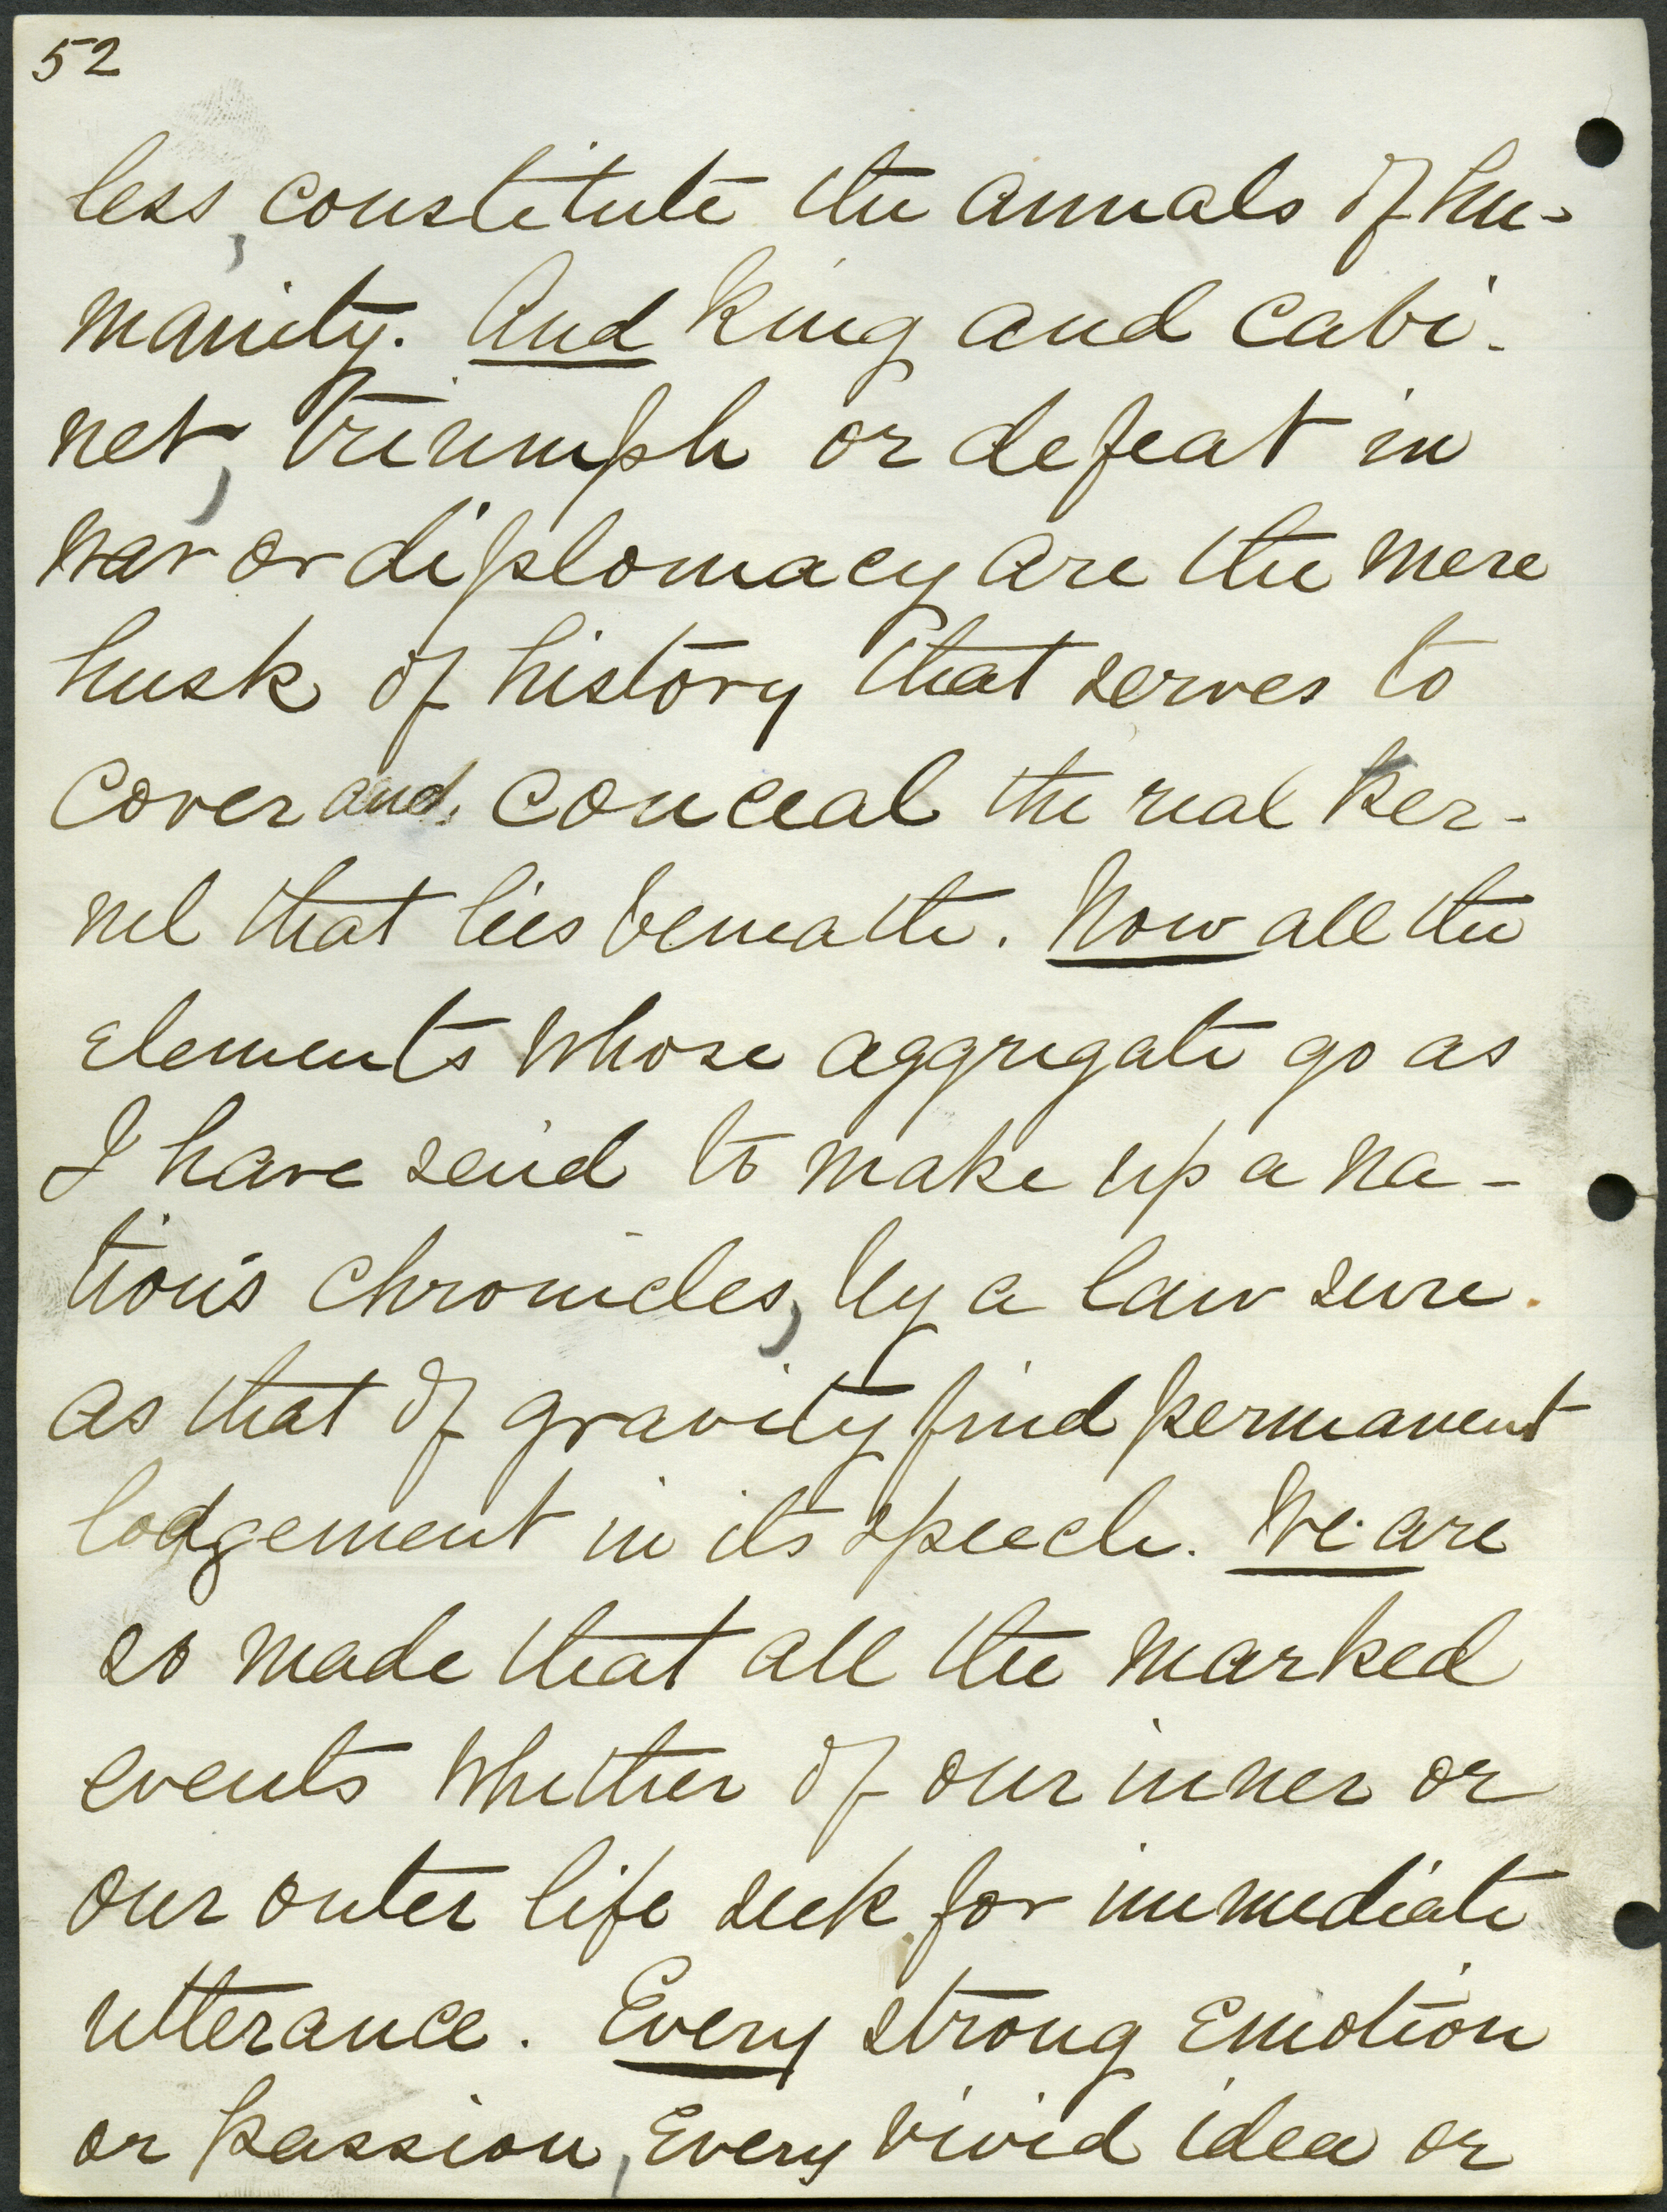 52
less, constitute the annals of hu-
manity. And king and cabi-
net, triumph or defeat in
war or diplomacy are the mere
husk of history that serves to
cover and conceal the real ker-
nel that lies beneath. Now all the
elements whose aggregate go as
I have said to make up a na-
tion's chronicles, by a law sure
as that of gravity find permanent
lodgement in its speech. We are
so made that all the marked
events whether of our inner or
our outer life seek for immediate
utterance. Every strong emotion
or passion, every vivid idea or